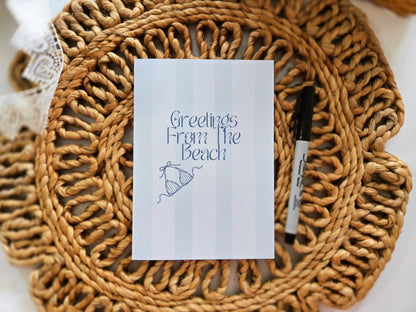 Greetings
From The
Beach